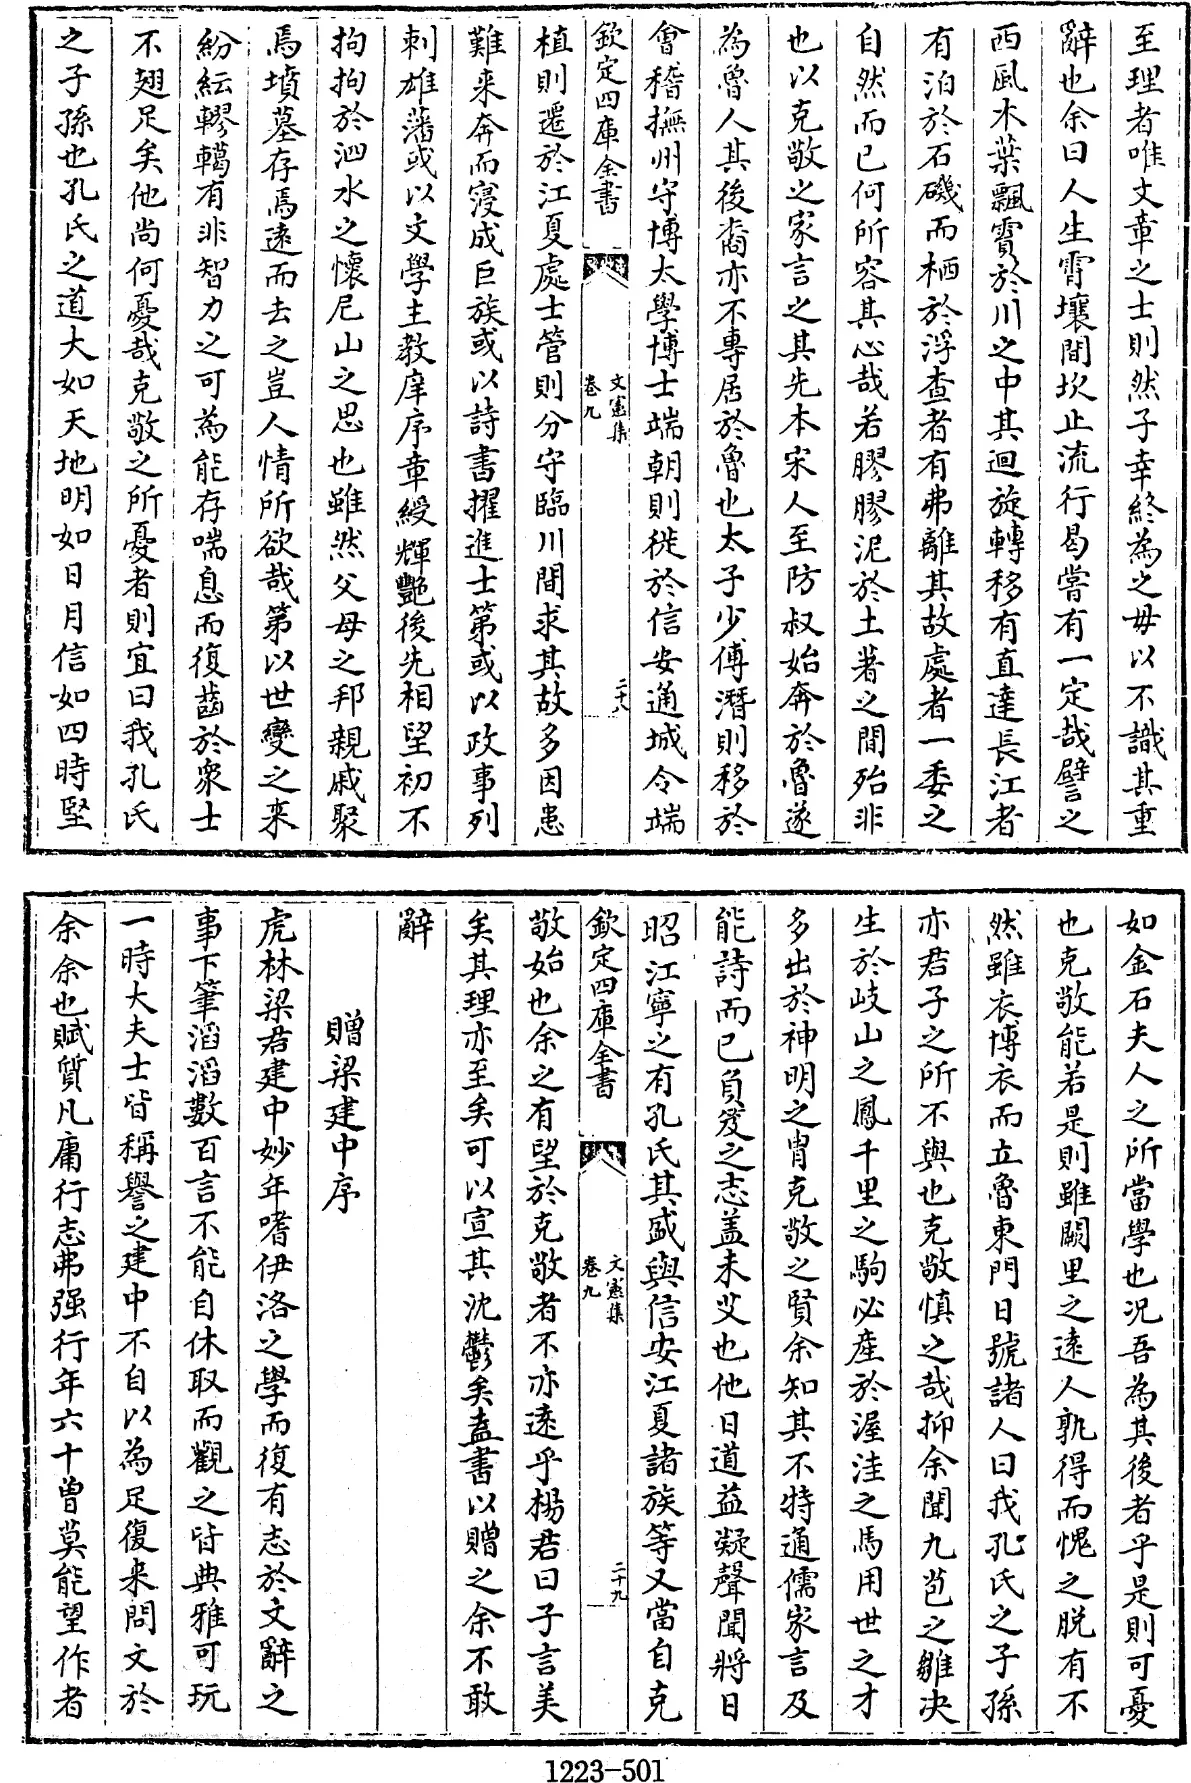 至理者唯文章之士則然子幸終為之毋以不識其重
辭也余曰人生霄壤間坎止流行曷嘗有一定哉譬之
西風木葉飄實於川之中其迴旋轉移有直達長江者
有泊於石磯而栖於浮查者有弗離其故處者一委之
自然而已何所容其心哉若膠膠泥於土著之間殆非
也以克敬之家言之其先本宋人至防叔始奔於魯遂
為魯人其後裔亦不專居於魯也太子少傅潛則移於
會稽撫州守博太學博士端朝則徙於信安通城令端
欽定四庫全書
文憲集
卷九
二十八
植則遷於江夏處士管則分守臨川間求其故多因患
難来奔而寖成巨族或以詩書擢進士第或以政事列
刺雄藩或以文學主教庠序章綬輝艷後先相望初不
拘拘於泗水之懷尼山之思也雖然父母之邦親戚聚
焉墳墓存焉遠而去之豈人情所欲哉第以世變之来
紛紜轇轕有非智力之可為能存喘息而復齒於衆士
不翅足矣他尚何憂哉克敬之所憂者則宜曰我孔氏
之子孫也孔氏之道大如天地明如日月信如四時堅
如金石夫人之所當學也况吾為其後者乎是則可憂
也克敬能若是則雖闕里之遠人孰得而愧之脱有不
然雖衣博衣而立魯東門日號諸人曰我孔氏之子孫
亦君子之所不與也克敬慎之哉抑余聞九苞之雛决
生於岐山之鳳千里之駒必産於渥洼之馬用世之才
多出於神明之胄克敬之賢余知其不特通儒家言及
能詩而已負笈之志盖未艾也他日道益凝聲聞將日
昭江寧之有孔氏其盛與信安江夏諸族等又當自克
欽定四庫全書
文憲集
卷九
二十九
敬始也余之有望於克敬者不亦遠乎楊君曰子言美
矣其理亦至矣可以宣其沈鬱矣盍書以贈之余不敢
辭
贈梁建中序
虎林梁君建中妙年嗜伊洛之學而復有志於文辭之
事下筆滔滔數百言不能自休取而觀之皆典雅可玩
一時大夫士皆稱譽之建中不自以為足復来問文於
余余也賦質凡庸行志弗强行年六十曾莫能望作者
1223-501